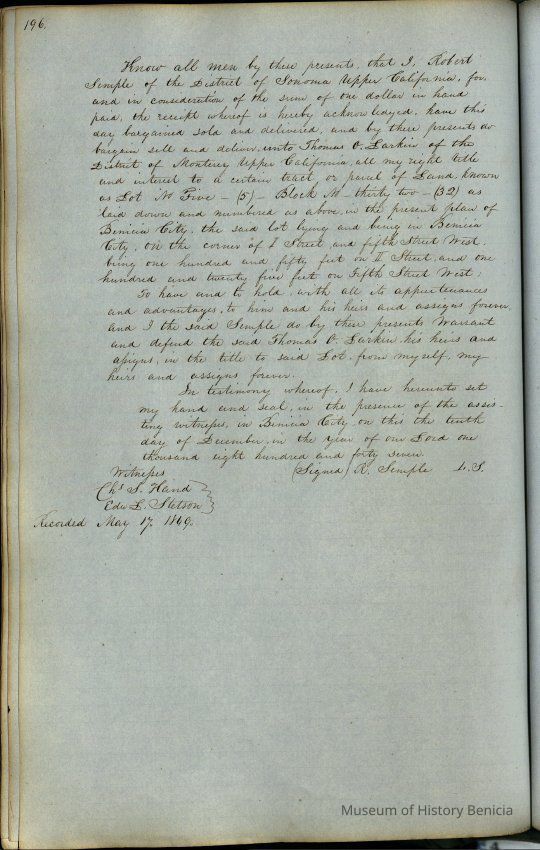 196.
Know all men by these presents, that I, Robert
Semple of the District of Sonoma Upper California, for
and in consideration of the sum of one dollar in hand
paid, the receipt whereof is hereby acknowledged, have this
day bargained sold and delivered, and by these presents do
bargain sell and deliver, unto Thomas O. Larkin of the
District of Monterey Upper California, all my right title
and interest to a certain tract or parcel of Land, known
as Lot No Five - (5) - Block No - thirty two - (32) as
laid down and numbered as above, in the present plan of
Benicia City, the said lot lying and being in Benicia
City, on the corner of I Street and fifth Street West.
being one hundred and fifty feet on I Street, and one
hundred and twenty five feet on Fifth Street West;
To have and to hold, with all its appurtenances
and advantages, to him and his heirs and assigns forever,
and I the said Semple do by these presents Warrant
and defend the said Thomas O. Larkin his heirs and
assigns, in the title to said Lot, from myself, my
heirs and assigns forever.
In testimony whereof, I have hereunto set
my hand and seal, in the presence of the assis-
ting witness, in Benicia City on this the tenth
day of December, in the year of our Lord one
thousand eight hundred and forty seven.
Witness (Signed) R. Semple L.S.
Chs S. Hand
Edw L. Stetson
Recorded May 17, 1849.
Museum of History Benicia